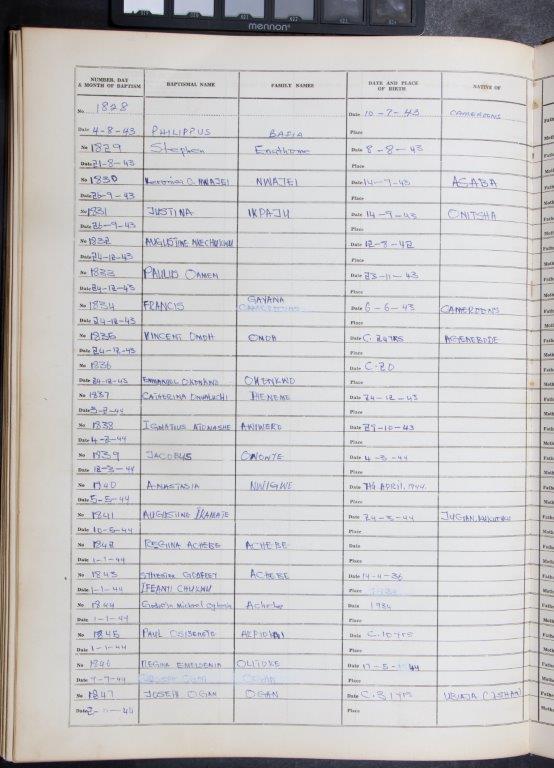 mennon
NUMBER, DAY & MONTH OF BAPTISM BAPTISMAL NAME FAMILY NAMES DATE AND PLACE OF BIRTH NATIVE OF
No 1828 Date 10-7-43 CAMEROONS
Date 4-8-43 PHILIPPUS BASIA Place
No 1829 Stephen Date 8-8-43
Date 21-8-43 Place
No 1830 C. NWAJEI NWAJEI Date 14-7-43 ASABA
Date 26-9-43 Place
No 1831 JUSTINA IKPAJU Date 14-9-43 ONITSHA
Date 26-9-43 Place
No 1832 AUGUSTINE NKECHUKWU Date 12-8-42
Date 24-12-43 Place
No 1833 PAULUS OAMEN Date 23-11-43
Date 24-12-43 Place
No 1834 FRANCIS GAYANA Date 6-6-43 CAMEROONS
CAMEROONS
Date 24-12-43 Place
No 1835 VINCENT OMOH OMOH Date C. 24 YRS AGENEBODE
Date 24-12-43 Place
No 1836 Date C.20
Date 24-12-43 EMMANUEL OKENKWO OKENKWO Place
No 1837 CATHERINA IHENEME Date 24-12-43
Date 3-2-44 Place
No 1838 IGNATIUS AKIWERE Date 29-10-43
Date 4-2-44 Place
No 1839 JACOBUS OWONYE Date 4-3-44
Date 12-3-44 Place
No 1840 ANASTASIA NWIGWE Date 7th APRIL, 1944
Date 5-5-44 Place
No 1841 AUGUSTINE Date 24-3-44
Date 10-5-44 Place
No 1842 REGINA ACHEBE ACHEBE Date
Date 1-1-44 Place
No 1843 GODFREY ACHEBE Date 14-4-36
Date 1-1-44 IFEANYI CHUKWU Place
No 1844 Michael Achebe Date 1934
Date 1-1-44 Place
No 1845 PAUL Date C. 10 YRS
Date 1-1-44 Place
No 1846 REGINA Date 17-5-44
Date 7-7-44 JOSEPH OGAN OGAN Place
No 1847 JOSEPH OGAN OGAN Date C. 31 YRS UBIAJA (ISHAN)
Place